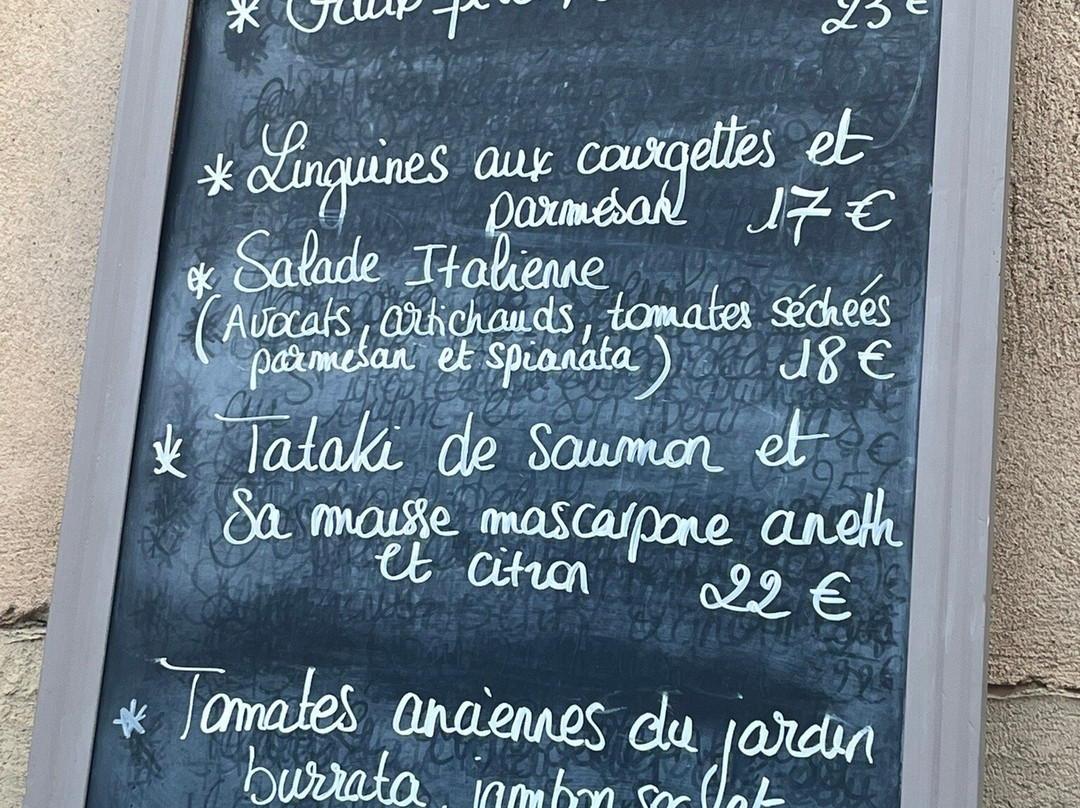 * 23 €
* Linguines aux courgettes et
parmesan 17 €
* Salade Italienne
(Avocats, artichauds, tomates séchéés
parmesan et spianata) 18 €
* Tataki de saumon et
Sa mousse mascarpone aneth
et citron 22 €
* Tomates anciennes du jardin
burrata, jambon sec et